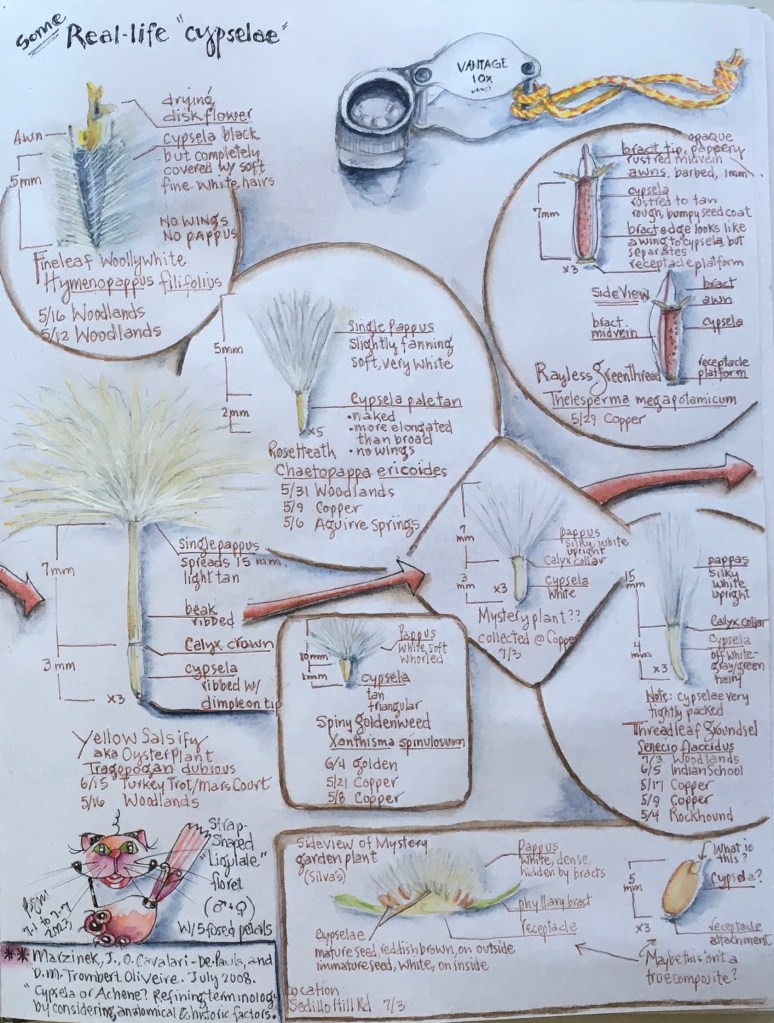 some Real-life "cypselae"
VANTAGE
10X
drying
disk flower
Awn
cypsela black
but completely
covered w/ soft
fine white hairs
5mm
NO WINGS
NO PAPPUS
x3
Fineleaf Woollywhite
Hymenopappus filifolius
5/16 Woodlands
5/12 Woodlands
opaque
bract tip, pappery
rustred midvein
awns, barbed, 1mm
cypsela
rustred to tan
rough, bumpy seed coat
bract edge looks like
a wing to cypsela but
separates
receptacle platform
7mm
x3
Side View
bract
awn
bract
midvein
cypsela
receptacle
platform
Rayless Greenthread
Thelesperma megapotamicum
5/29 Copper
5mm
2mm
Single Pappus
Slightly fanning
soft, very white
Cypsela pale tan
• naked
• more elongated
than broad
• no wings
x5
Rose Heath
Chaetopappa ericoides
5/31 Woodlands
5/9 Copper
5/6 Aguirre Springs
7mm
3mm
Single pappus
spreads 15 mm
light tan
beak
ribbed
Calyx crown
cypsela
ribbed w/
dimple on tip
x3
Yellow Salsify
aka Oyster Plant
Tragopogan dubious
6/15 Turkey Trot/Mars Court
5/16 Woodlands
7
mm
3
mm
x3
Pappus
silky, white
upright
Calyx collar
cypsela
white
Mystery plant??
collected @ Copper
7/3
15
mm
4
mm
x3
pappas
silky
white
upright
Calyx collar
Cypsela
off white-
gray/green
hairy
Note: cypselae very
tightly packed
Threadleaf Groundsel
Senecio flaccidus
7/3 Woodlands
6/5 Indian School
5/17 Copper
5/9 Copper
5/4 Rockhound
10mm
2mm
x3
Pappus
white, soft
whorled
cypsela
tan
triangular
Spiny Goldenweed
Xanthisma spinulosum
6/4 Golden
5/21 Copper
5/8 Copper
Strap-
Shaped
"Ligulate"
floret
(♂+♀)
w/ 5 fused petals
7-1 to 7-7
2023
Sideview of Mystery
garden plant
(Silva's)
Pappus
white, dense,
hidden by bracts
phyllary bract
receptacle
Cypselae
mature seed, reddish brown, on outside
immature seed, white, on inside
Location
Sedillo Hill Rd 7/3
What is
this?
5
mm
Cypsela?
x3
receptacle
attachment
Maybe this isn't a
true composite?
** Marzinek, J., O. Cavalari-De-Paula, and
D.M. Trombert Oliveire. July 2008.
"Cypsela or Achene? Refining terminology
by considering anatomical & historic factors.